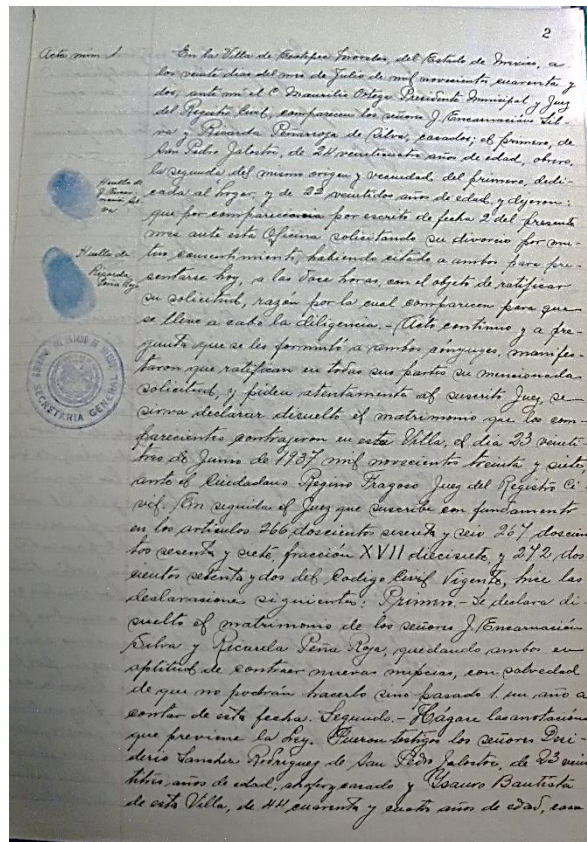 2
Acta núm 1. En la Villa de Ecatepec Morelos, del Estado de México, a
los veinte días del mes de Julio de mil novecientos cuarenta y
dos, ante mí el C. Maurilio Ortega Presidente Municipal y Juez
del Registro Civil, comparecen los señores J. Encarnación Sil-
va y Ricarda Peñarroja de Silva, casados; el primero, de
San Pedro Jalostoc, de 24 veinticuatro años de edad, obrero,
la segunda del mismo origen y vecindad del primero, dedi-
cada al hogar, y de 22 veintidos años de edad, y dijeron:
que por comparecencia por escrito de fecha 2 del presente
mes ante esta Oficina, solicitando su divorcio por mu-
tuo consentimiento, habiendo citado a ambos para pre-
sentarse hoy, a las doce horas, con el objeto de ratificar
su solicitud, razón por la cual comparecen para que
se lleve a cabo la diligencia. - Acto continuo y a pre-
gunta que se les formuló a ambos cónyuges, manifes-
taron que ratifican en todas sus partes su mencionada
solicitud, y piden atentamente al suscrito Juez, se
sirva declarar disuelto el matrimonio que los com-
parecientes contrajeron en esta Villa, el día 23 veinti-
tres de Junio de 1937 mil novecientos treinta y siete,
ante el Ciudadano Regino Fragoso Juez del Registro Ci-
vil. En seguida el Juez que suscribe con fundamento
en los artículos 266 doscientos sesenta y seis 267 doscien
tos sesenta y siete, fracción XVII diecisiete, y 272 dos
cientos setenta y dos del Codigo Civil Vigente, hice las
declaraciones siguientes: Primera.- Se declara di
suelto el matrimonio de los señores J. Encarnación
Silva y Ricarda Peña Roja, quedando ambos en
aptitud de contraer nuevas nupcias, con salvedad
de que no podrán hacerlo sino pasado 1, un año a
contar de esta fecha. Segundo.- Hágase la anotación
que previene la Ley. Fueron testigos los señores Desi-
derio Sanchez Rodríguez de San Pedro Jalostoc, de 23 vein
titrés, años de edad, chofer, casado y Ysauro Bautista
de esta Villa, de 44 cuarenta y cuatro años de edad, casa
Huella de
J. Encar-
nación Sil-
va
Huella de
Ricarda
Peña Roja
SECRETARIA GENERAL